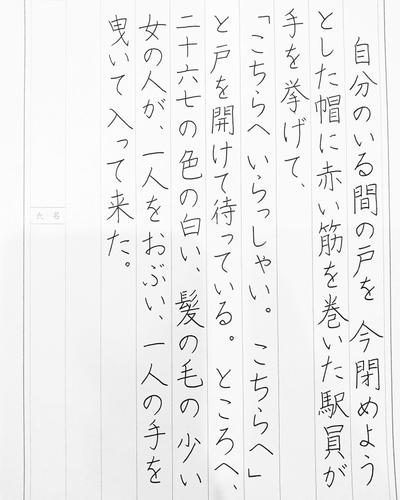 自分のいる間の戸を今閉めよう
とした帽に赤い筋を巻いた駅員が
手を挙げて、
「こちらへいらっしゃい。こちらへ」
と戸を開けて待っている。ところへ、
二十六七の色の白い、髪の毛の少い
女の人が、一人をおぶい、一人の手を
曳いて入って来た。
氏名